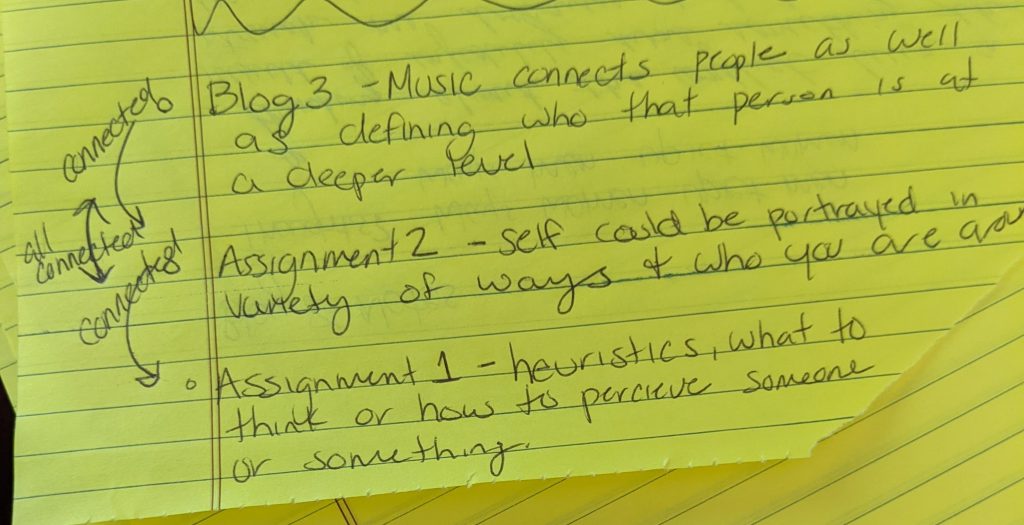 connected
all
connected
connected
Blog 3 - Music connects people as well
as defining who that person is at
a deeper level
Assignment 2 - self could be portrayed in
variety of ways + who you are
Assignment 1 - heuristics, what to
think or how to percieve someone
or something.